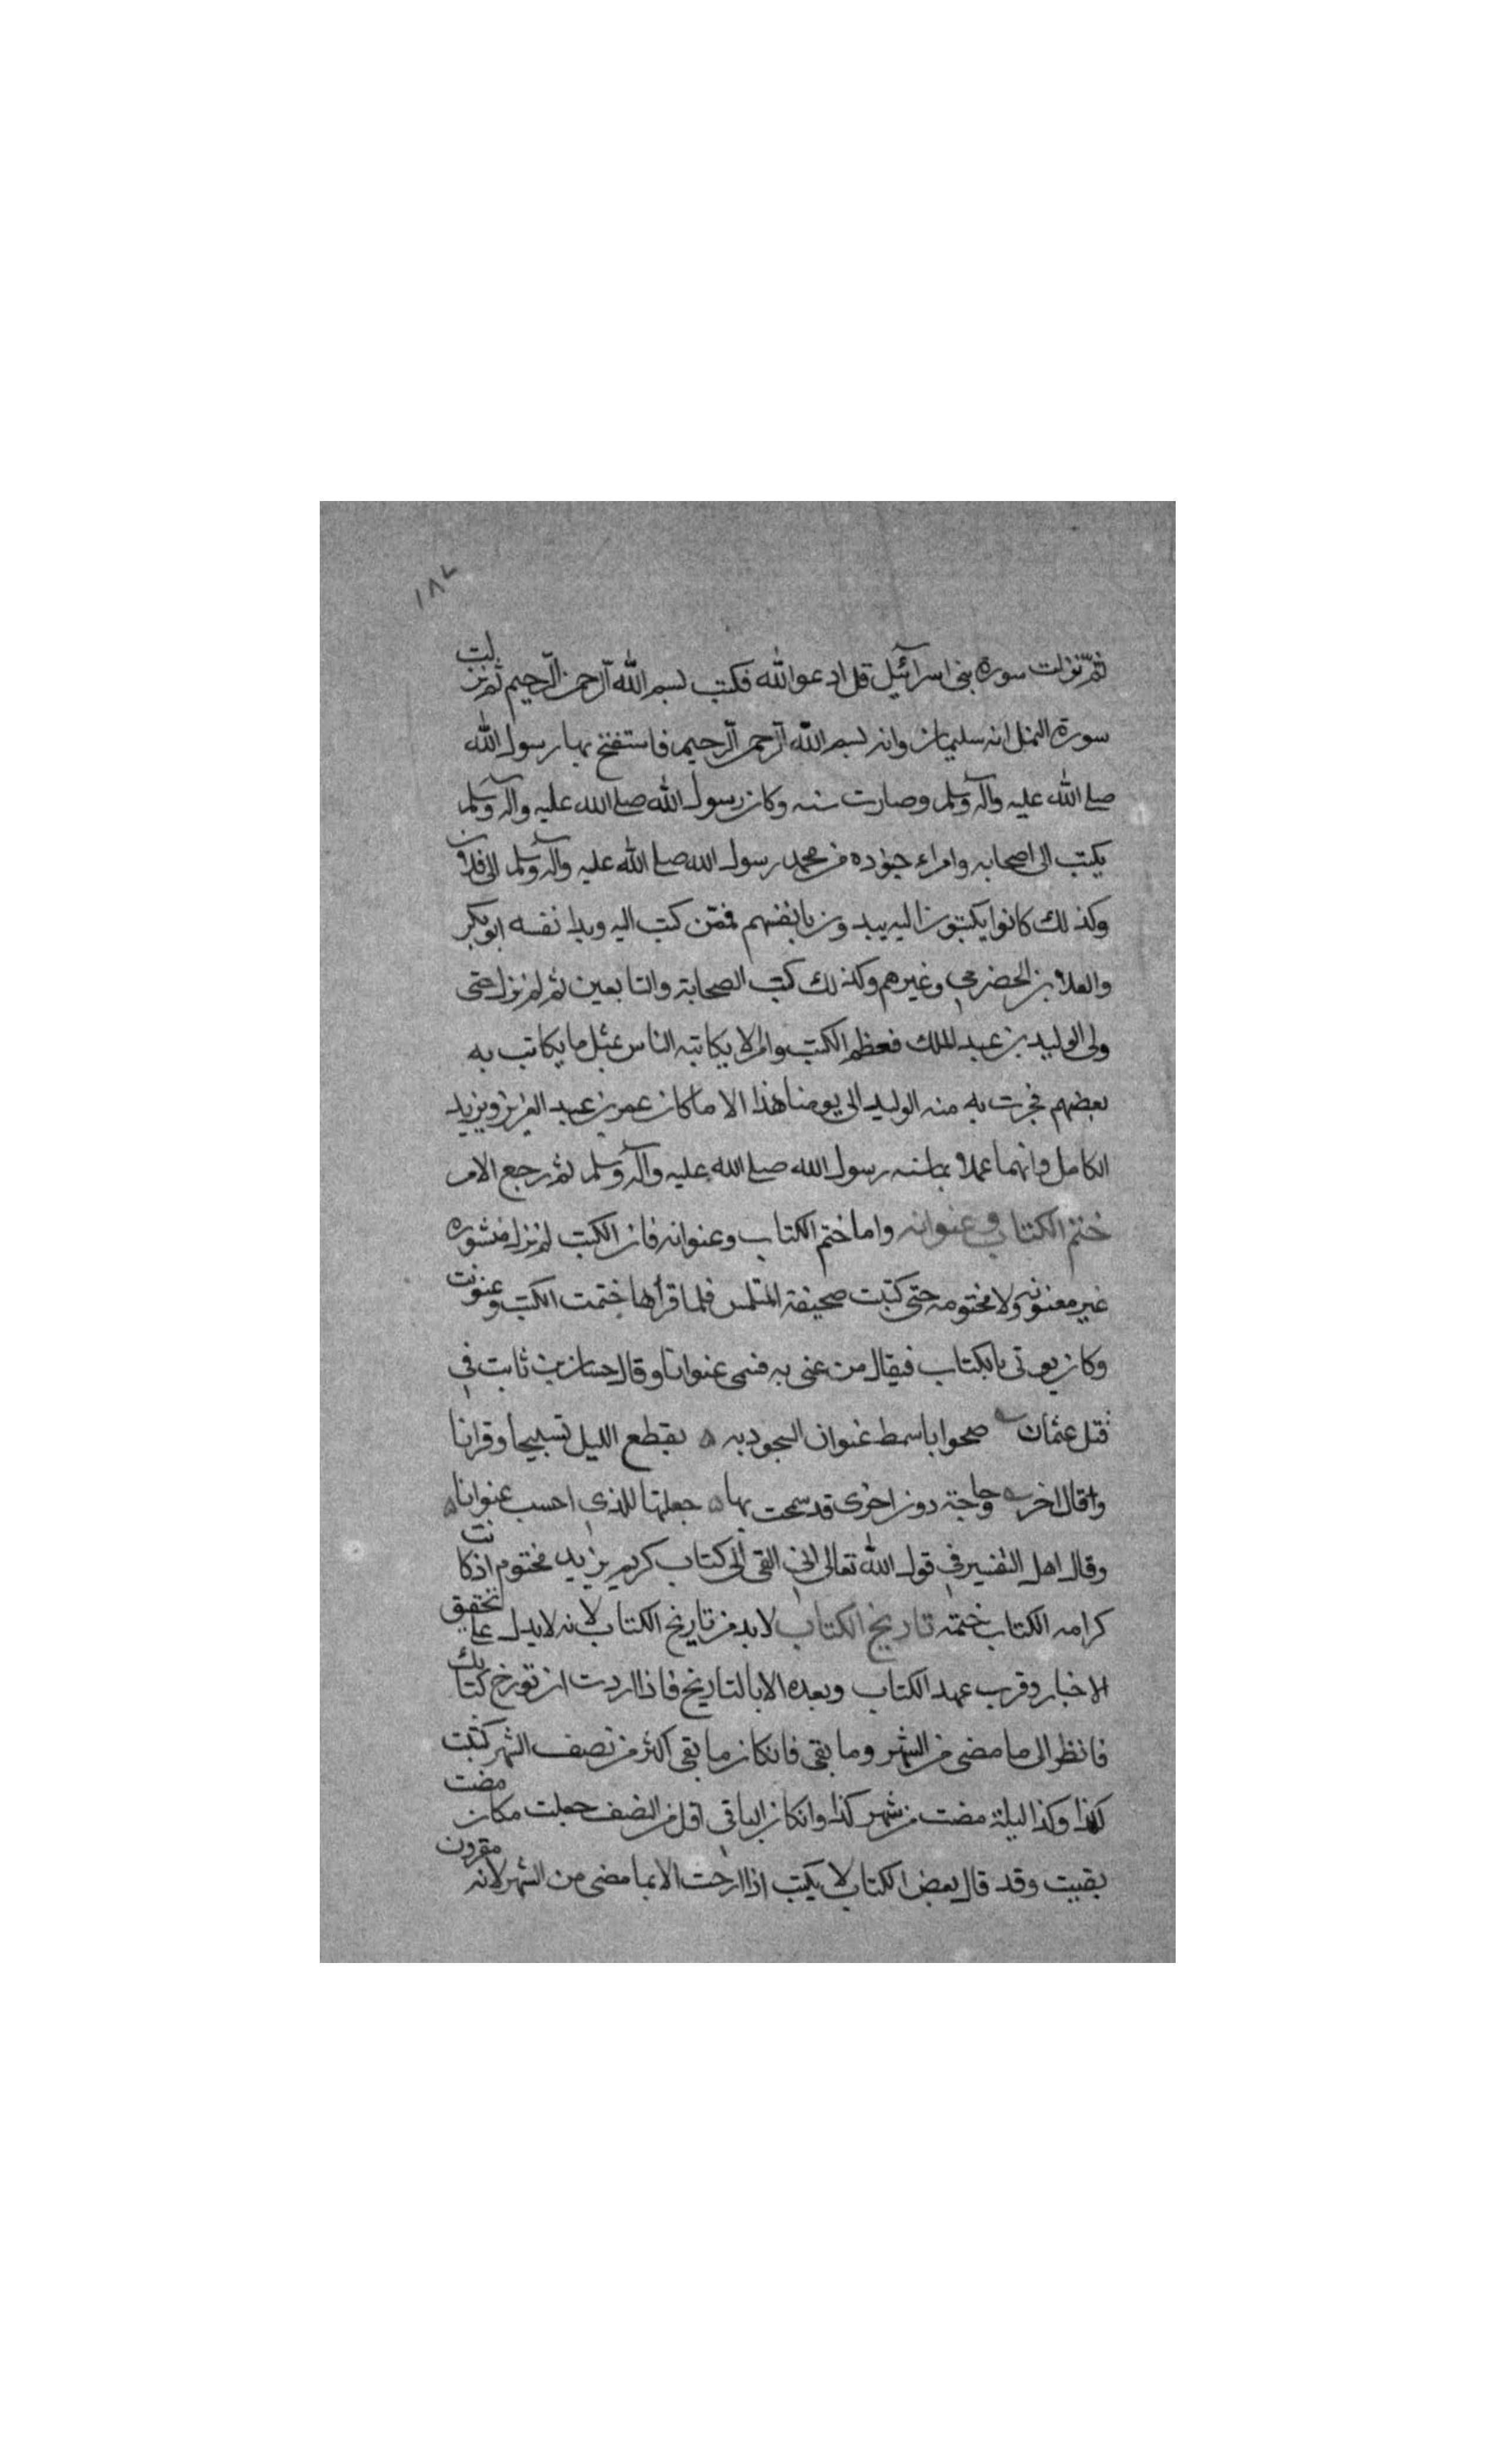 ١٨٧
ثم نزلت سورة بنى اسرآئيل قل ادعوا الله فكتب بسم الله الرحمن الرحيم ثم نزلت
سورة النمل انه سليمان وانه بسم الله الرحمن الرحيم فاستفتح بها رسول الله
صلى الله عليه وآله وسلم وصارت سنه وكان رسول الله صلى الله عليه وآله وسلم
يكتب الى اصحابه وامراء جنوده من محمد رسول الله صلى الله عليه وآله وسلم الى فلان
وكذلك كانوا يكتبون اليه يبدون بانفسهم فممن كتب اليه وبدا نفسه ابوبكر
والعلا بن الحضرمى وغيرهم وكذلك كتب الصحابة والتابعين ثم لم نزل حتى
ولى الوليد بن عبد الملك فعظم الكتب وامر لا يكاتبه الناس بمثل ما يكاتب به
بعضهم فجرت به منه الوليد الى يومنا هذا الا ما كان عمر بن عبد العزيز ويزيد
الكامل فانهما عملا بما سنه رسول الله صلى الله عليه وآله وسلم ثم رجع الامر
ختم الكتاب وعنوانه واما ختم الكتاب وعنوانه فان الكتب لم نزل منشوره
غير معنونه ولا مختومه حتى كتبت صحيفة المتلمس فلما قرأها ختمت الكتب وعنونت
وكان يوتى بالكتاب فيقال من عنى به فسمى عنوانا وقال حسان بن ثابت فى
قتل عثمان ضحوا باسمط عنوان السجود به يقطع الليل تسبيحا وقرانا
وقال اخر وحاجة دون اخرى قد سمحت بها جعلتها للذى احسب عنوانا
وقال اهل التفسير فى قول الله تعالى انى القى الى كتاب كريم يريد مختوم اذ كانت
كرامه الكتاب ختمه تاريخ الكتاب لا بد من تاريخ الكتاب لانه لا يدل على تحقيق
الاخبار وقرب عهد الكتاب وبعده الا بالتاريخ فاذا اردت ان تورخ كتابك
فانظر الى ما مضى من الشهر وما بقى فانكان ما بقى اكثر من نصف الشهر كتبت
كذا وكذا ليلة مضت من شهر كذا وانكان الباقى اقل من النصف جعلت مكان مضت
بقيت وقد قال بعض الكتاب لا يكتب اذا ارخت الا بما مضى من الشهر لانه مقرون